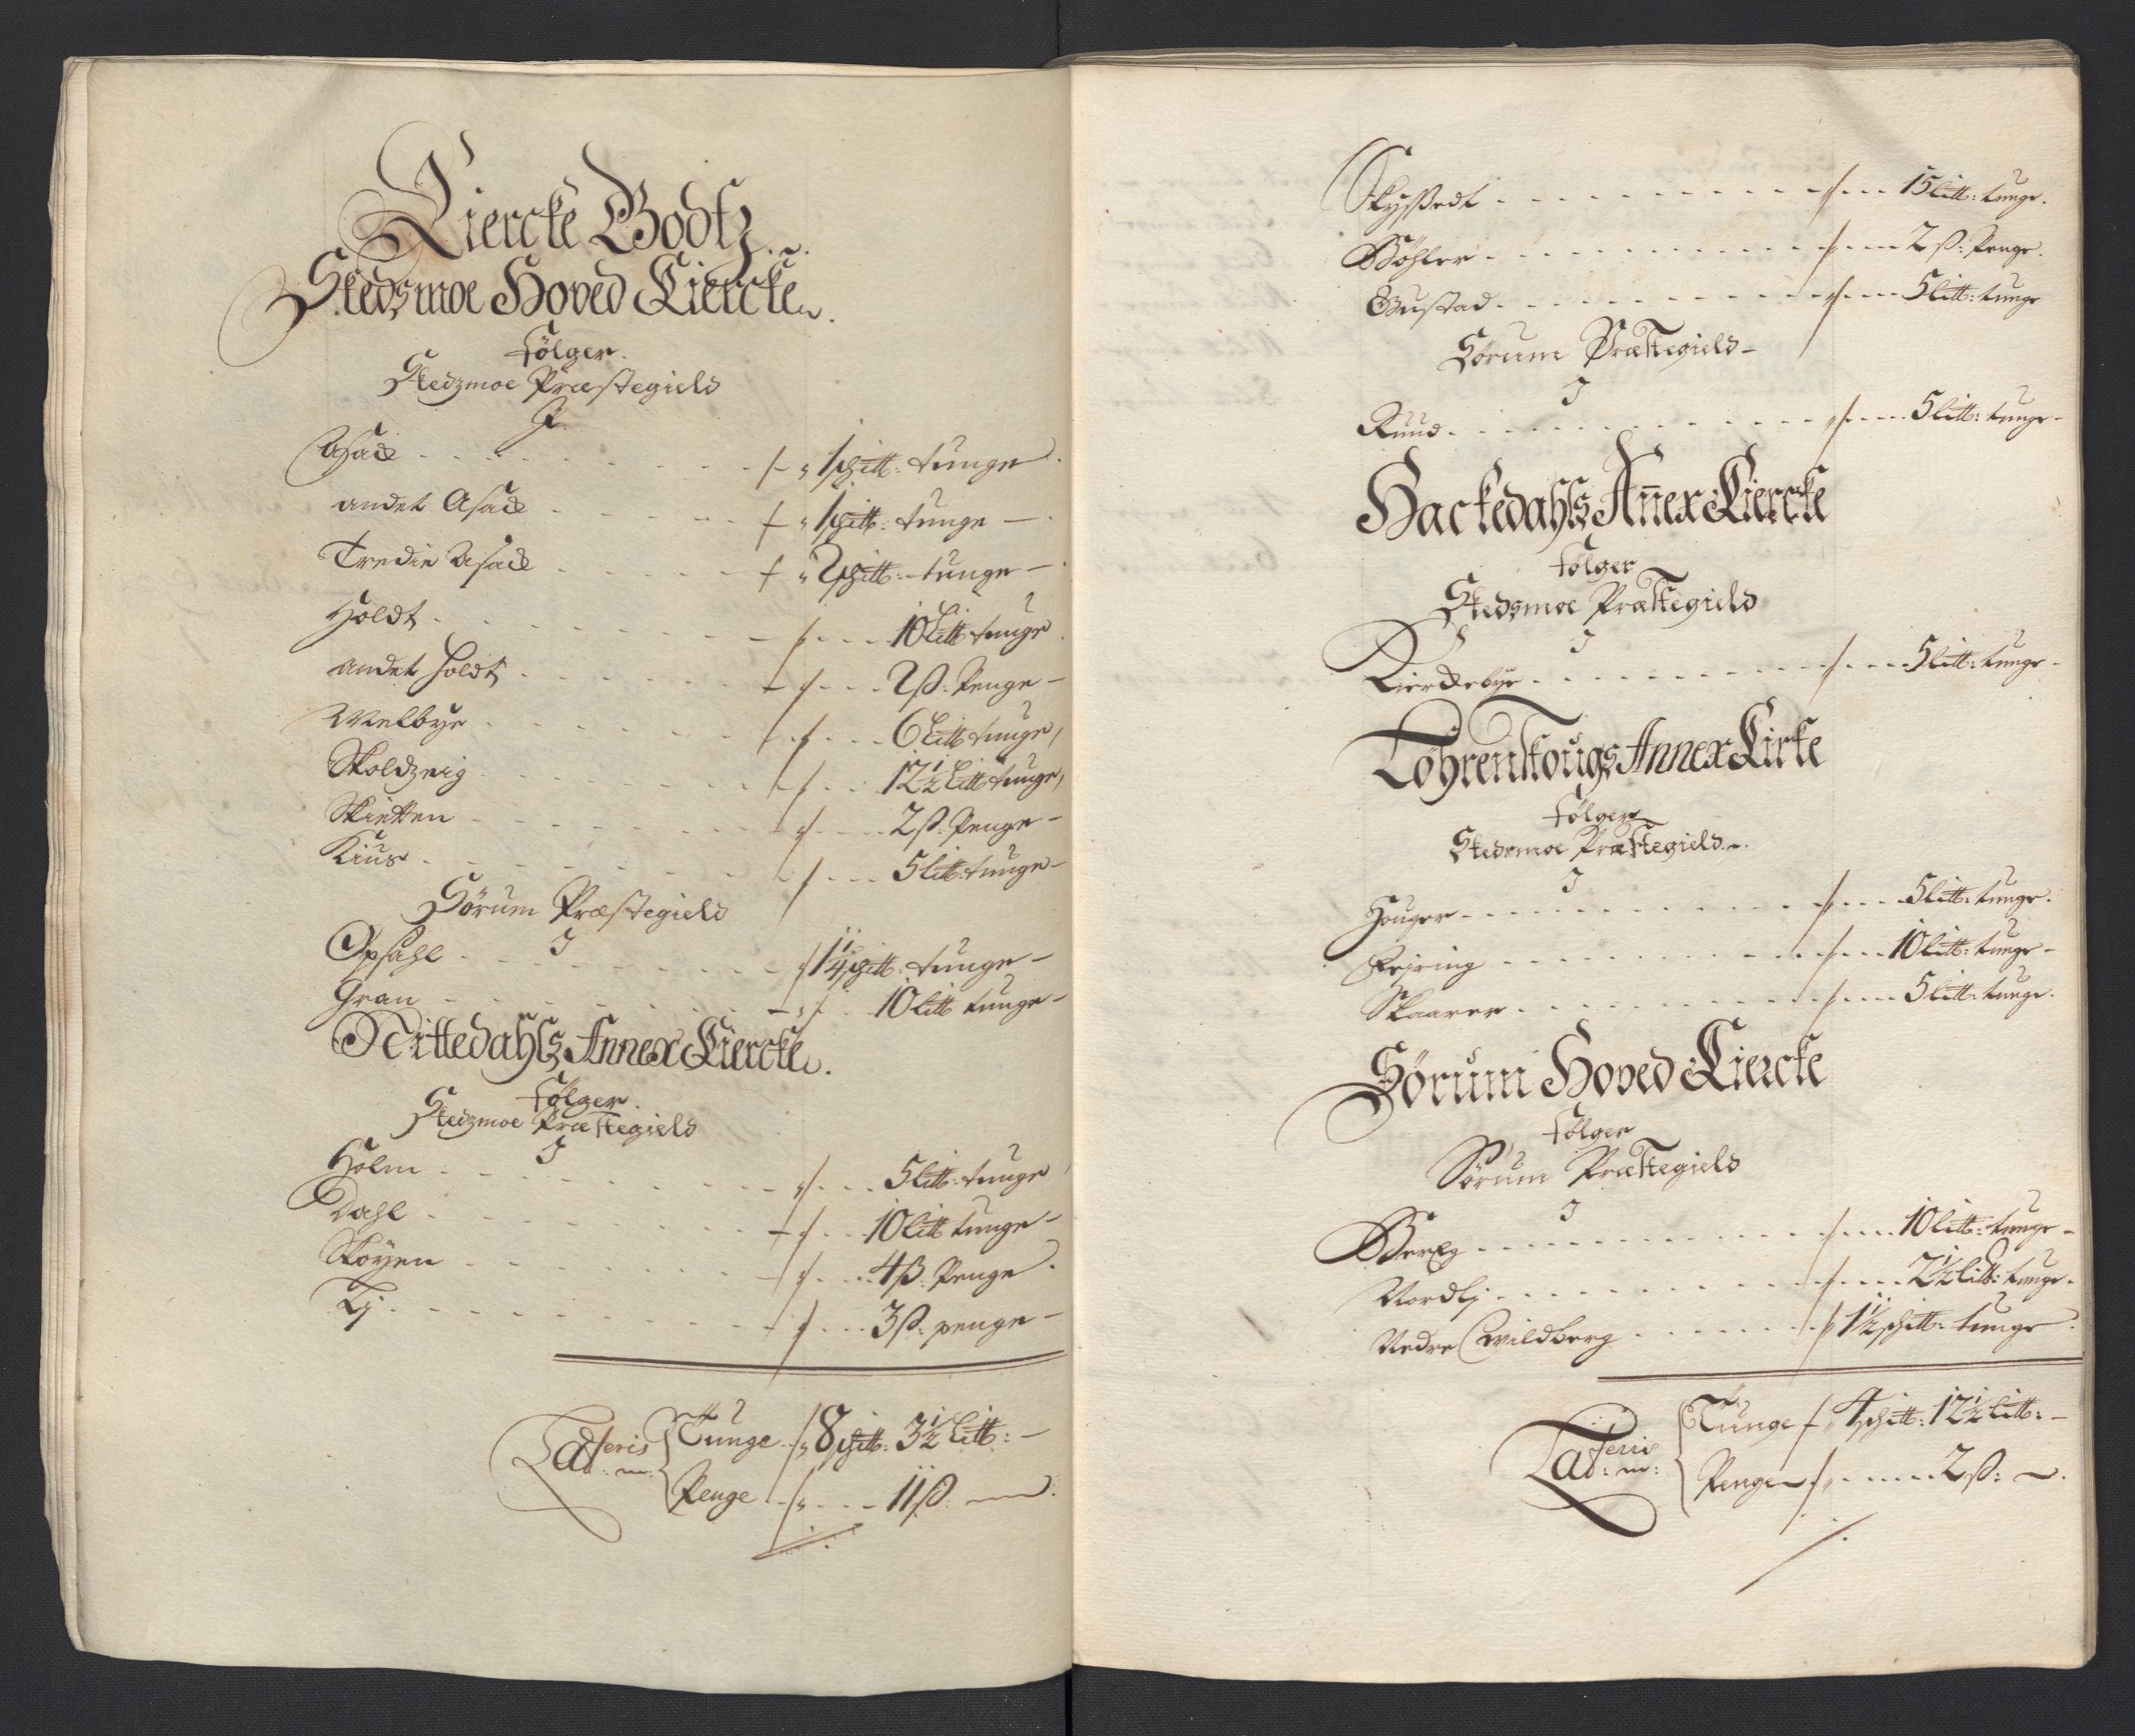 Kiercke Godtz
Skedsmoe Hoved Kiercke
følger.
Skedzmoe Præstegield
J
Asack - 1 schitt: tunge
andet Asack - 1 schitt: tunge
Tredie Asack - 2 schitt: tunge
Holdt - 10 Litt tunge
andet Holdt - 2 ß: Penge
Melbye - 6 Litt tunge
Skoldzvig - 12½ Litt tunge
Skietten - 2 ß: Penge
Kius - 5 litt: tunge
Sørum Præstegield
J
Opsahl - 1¼ schitt: tunge
Gran - 10 litt tunge
Nittedahls Annex Kiercke.
følger.
Skedzmoe Præstegield
J
Holm - 5 litt: tunge
Dahl - 10 litt tunge
Skøyen - 4 ß: Penge
Lj - 3 ß: penge
Lateris Tunge 8 schitt: 3½ Litt:
Penge 11 ß:
Skyssedt - 15 litt: tunge.
Bøhler - 2 ß: Penge.
Gustad - 5 litt: tunge
Sørum Præstegield
J
Ruud - 5 litt: tunge
Hackedahls Añex Kiercke
følger
Skedsmoe Præstegield
J
Kierckebye - 5 litt: tunge
Løhrenskougs Annex Kirke
følger
Skedsmoe Præstegield.
J
Houger - 5 litt: tunge.
Fejring - 10 litt: tunge
Skaarer - 5 litt: tunge.
Sørum Hoved Kiercke
følger
Sørum Præstegield
J
Berg - 10 litt: tunge
Nordlj - 2½ litt: tunge.
Nedre Qwildberg - 1½ schitt: tunge
Lateris Tunge 4 schitt: 12½ litt:
Penge 2 ß: